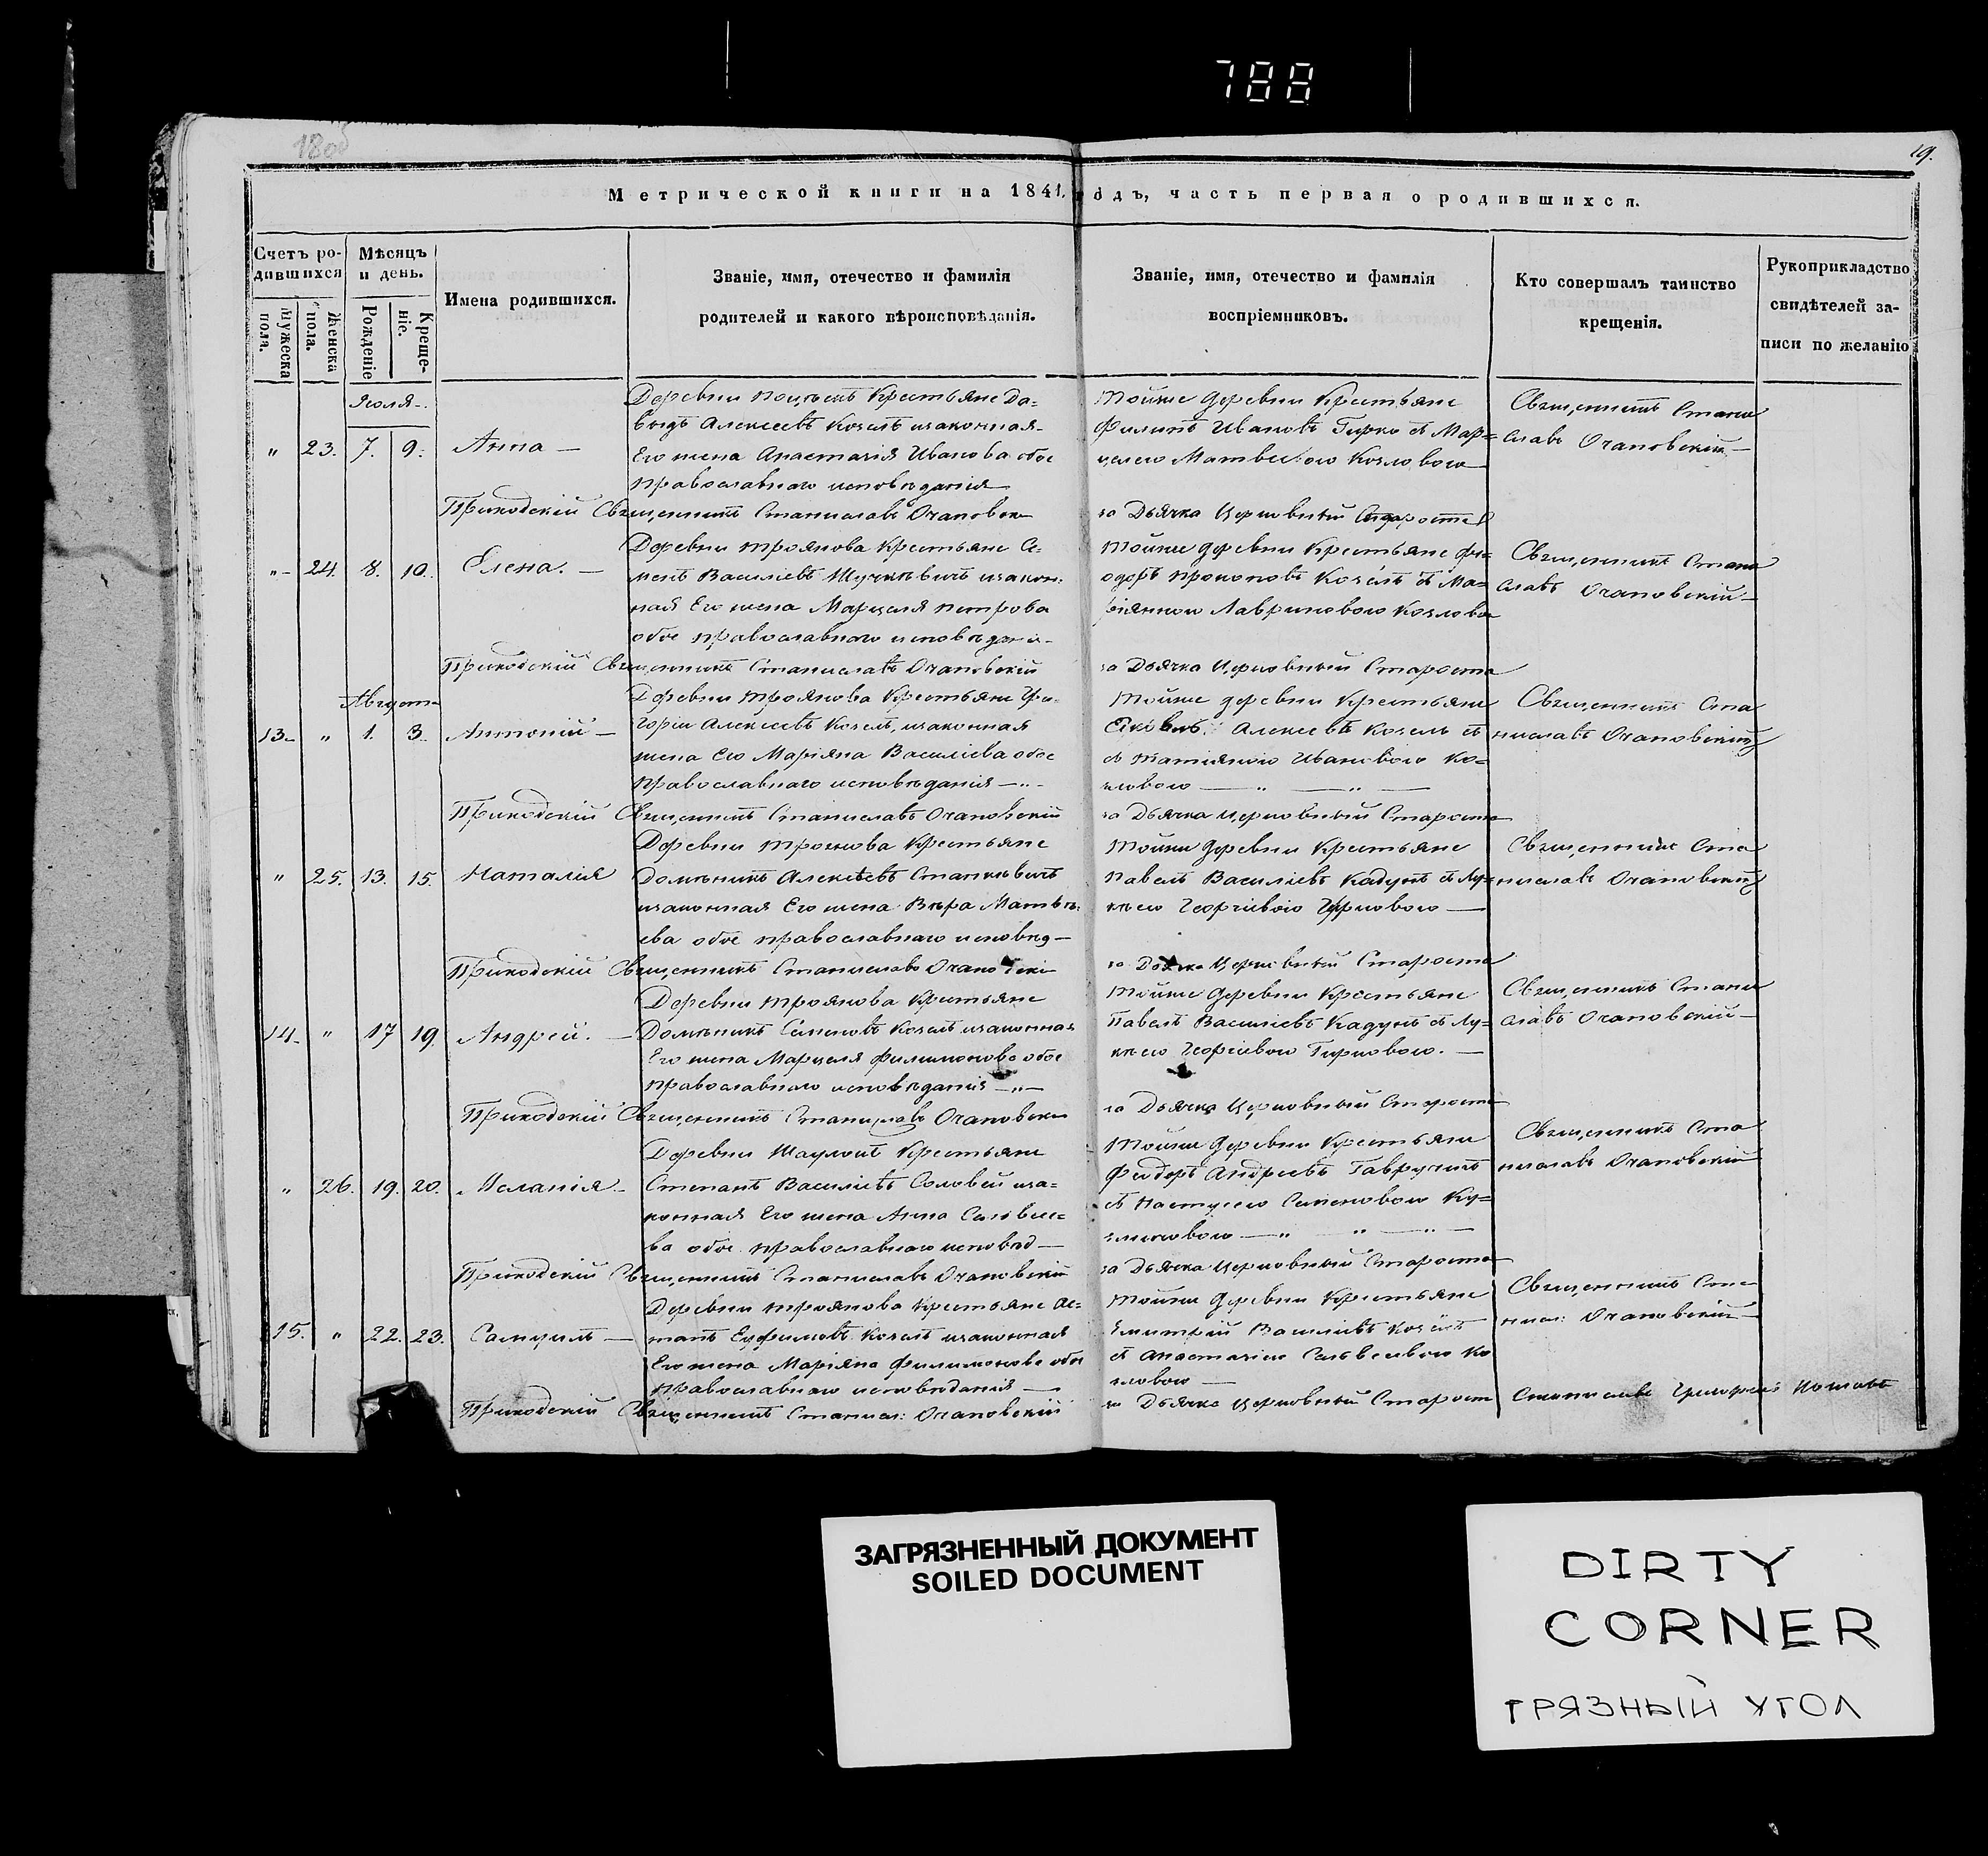 788
18об
19.
Метрической книги на 1841. годъ, часть первая о родившихся.
Счетъ родившихся
Мужеска пола.
Женска пола.
Мѣсяцъ и день.
Рожденіе
Крещеніе.
Имена родившихся.
Званіе, имя, отечество и фамилія
родителей и какого вѣроисповѣданія.
Званіе, имя, отечество и фамилія
воспріемниковъ.
Кто совершалъ таинство
крещенія.
Рукоприкладство
свидѣтелей за-
писи по желанію
Іюля
" 23. 7. 9. Анна —
Деревни Крестьяне Да=
выдъ Алексеевъ Козелъ изаконная
Его жена Анастазія Иванова обое
православнаго исповѣданія
Тойже деревни Крестьяне
Филипъ Ивановъ Гирко съ Мар=
целею Матвеевою Козловою
Священникъ Стани
славъ Очаповскій
Приходскій Священникъ Станиславъ Очаповски
за Дьячка Церковный Староста
" 24. 8. 10. Елена. —
Деревни Троянова Крестьяне Се=
менъ Василіевъ изакон:
ная Его жена Марцеля Петрова
обое православнаго исповѣдані
Тойже деревни Крестьяне Фе=
одоръ Прокоповъ Козелъ съ Ма=
ріянною Лавриновою Козлово
Священникъ Стани
славъ Очаповскій
Приходскій Священникъ Станиславъ Очаповскій
за Дьячка Церковный Староста
Августа
13 " 1. 3. Антоній —
Деревни Троянова Крестьяне Гри=
горій Алексеевъ Козелъ, изаконная
жена Его Маріяна Василіева обое
православнаго исповѣданія — " —
Тойже деревни Крестьяне
Алексеевъ Козелъ съ
съ Татіяною Ивановою Ко=
зловою — " — " —
Священникъ Ста
ниславъ Очаповскій
Приходскій Священникъ Станиславъ Очаповскій
за Дьячка Церковный Староста
" 25. 13. 15. Наталія
Деревни Троянова Крестьяне
Домѣникъ Алексѣевъ Станкѣвичъ
изаконная Его жена Вѣра Матвѣ=
ева обое православнаго исповѣд —
Тойже деревни Крестьяне
Павелъ Василіевъ Кадунъ съ Лу=
кѣею Георгіевою
Священникъ Ста
ниславъ Очаповскій
Приходскій Священникъ Станиславъ Очаповскі
за Дьячка Церковный Староста
14 " 17 19. Андрей. —
Деревни Троянова Крестьяне
Домѣникъ Семеновъ Козелъ изаконная
Его жена Марцеля Филимонова обое
православнаго исповѣданія — " —
Тойже деревни Крестьяне
Павелъ Василіевъ Кадунъ съ Лу=
кѣею Георгіевою Гирковою. —
Священникъ Стани
славъ Очаповскій —
Приходскій Священникъ Станиславъ Очаповски
за Дьячка Церковный Староста
" 26. 19. 20. Меланія
Деревни Крестьяне
Степанъ Василіевъ Соловей иза=
конная Его жена Анна
ва обое православнаго исповѣд —
Тойже деревни Крестьяне
Феодоръ Андреевъ
съ Настусею Семеновою Ку=
— " — " —
Священникъ Ста
ниславъ Очаповскій
Приходскій Священникъ Станиславъ Очаповскій
за Дьячка Церковный Староста
15. " 22. 23. Самуилъ —
Деревни Троянова Крестьяне Ос=
тапъ Ефимовъ Козелъ изаконная
Его жена Маріяна Филимонова обое
православнаго исповѣданія —
Тойже деревни Крестьяне
Дмитрій Василіевъ Козелъ
съ Анастазіею Ко
зловою —
Священникъ Ста
нисл: Очаповскій
Приходскій Священникъ Станисл: Очаповскій
за Дьячка Церковный Старост
ЗАГРЯЗНЕННЫЙ ДОКУМЕНТ
SOILED DOCUMENT
DIRTY
CORNER
ГРЯЗНЫЙ УГОЛ